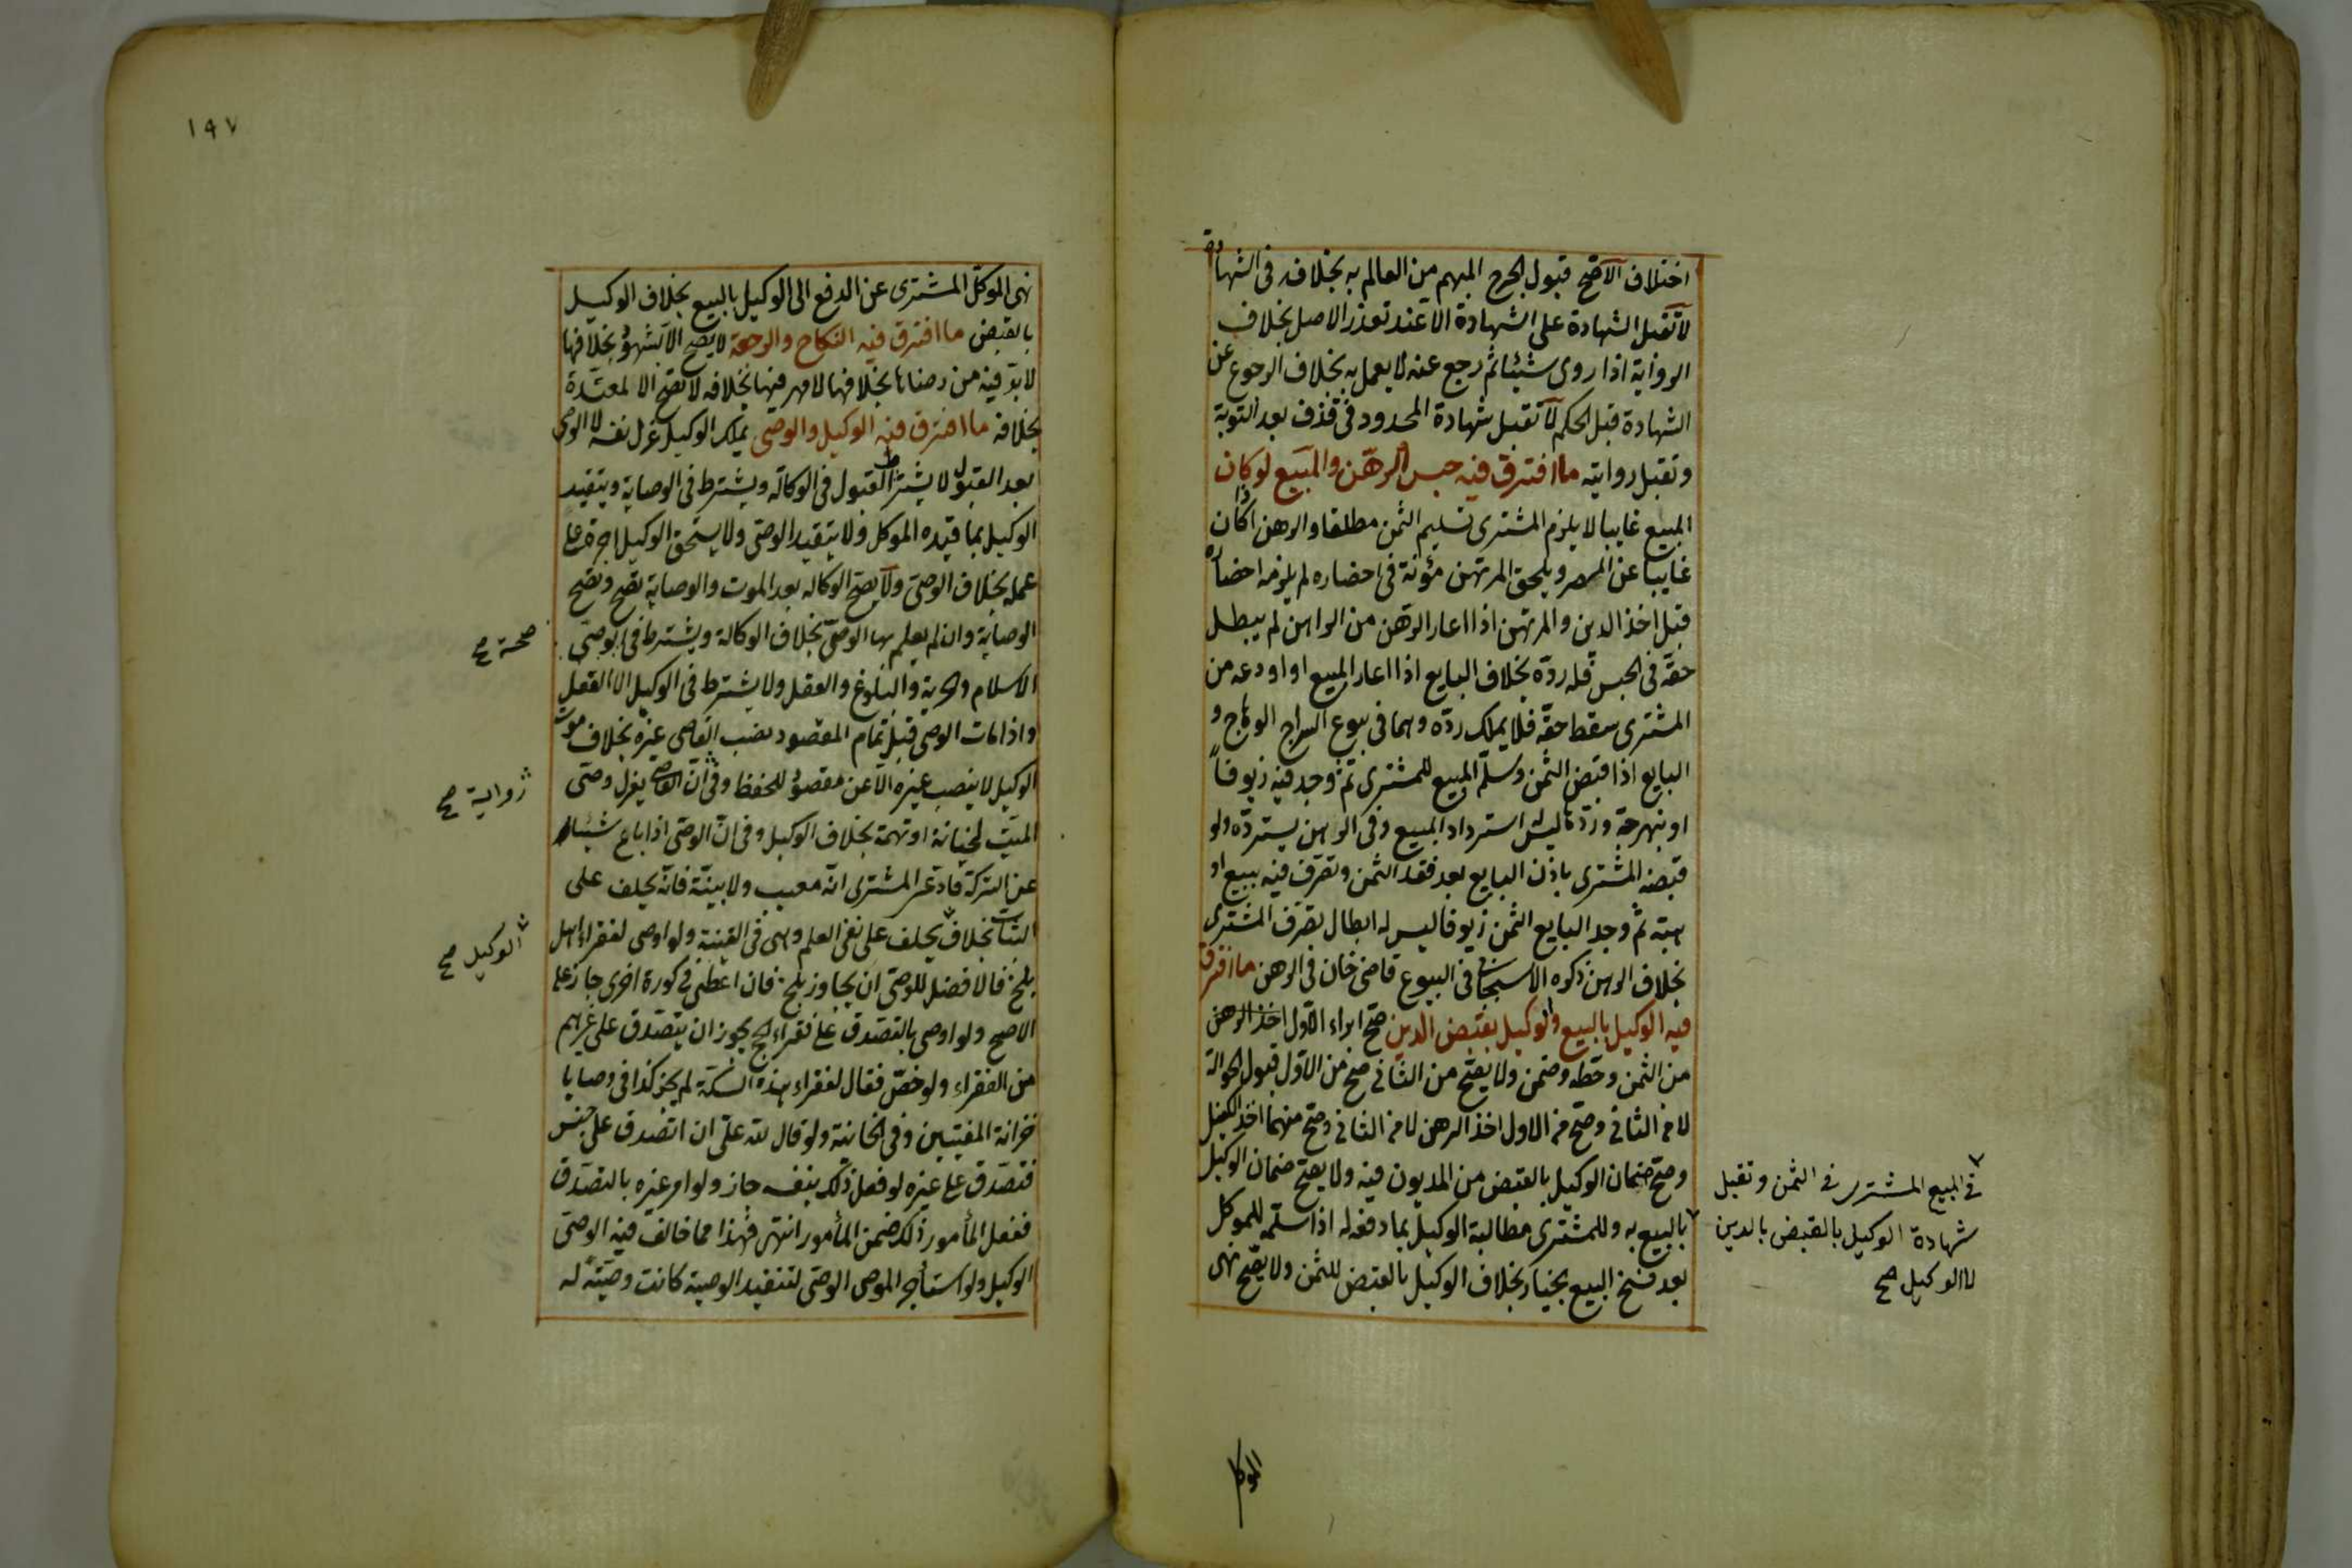 اختلاف الاصح قبول الجرح المبهم من العالم به بخلافه فى الشهادة
لا تقبل الشهادة على الشهادة الا عند تعذر الاصل بخلاف
الرواية اذا روى شيئا ثم رجع عنه لا يعمل به بخلاف الرجوع عن
الشهادة قبل الحكم لا تقبل شهادة المحدود فى قذف بعد التوبة
وتقبل روايته ما افترق فيه حبس الرهن والمبيع لو كان
المبيع غايبا لا يلزم المشترى تسليم الثمن مطلقا والرهن اذا كان
غايبا عن المصر ويلحق المرتهن مؤنة فى احضاره لم يلزمه احضاره
قبل اخذ الدين والمرتهن اذا اعار الرهن من الراهن لم يبطل
حقه فى الحبس فله رده بخلاف البايع اذا اعار المبيع او اودعه من
المشترى سقط حقه فلا يملك رده وهما فى بيوع السراج الوهاج و
البايع اذا قبض الثمن وسلم المبيع للمشترى ثم وجد فيه زيوفا
او نبهرجة وردها ليس له استرداد المبيع وفى الراهن يسترده ولو
قبضه المشترى باذن البايع بعد نقد الثمن وتصرف فيه ببيع او
هبة ثم وجد البايع الثمن زيوفا ليس له ابطال تصرف المشترى
بخلاف الراهن ذكره الاسبيجابى فى البيوع قاضى خان فى الرهن ما افترق
فيه الوكيل بالبيع والوكيل بقبض الدين صح ابراء الاول اخذ الرهن
من الثمن وحطه وضمن ولا يصح من الثانى صح من الاول قبول الحوالة
لا من الثانى وصح من الاول اخذ الرهن لا من الثانى وصح منهما اخذ الكفيل
وصح ضمان الوكيل بالقبض من المديون فيه ولا يصح ضمان الوكيل
بالبيع به وللمشترى مطالبة الوكيل بما دفعه له اذا سلمه للموكل
بعد فسخ البيع بخيار بخلاف الوكيل بالقبض للثمن ولا يصح نهى
فى المبيع المشترى فى الثمن وتقبل
شهادة الوكيل بالقبض بالدين
لا الوكيل صح
الموكل
١٩٧
نهى الموكل المشترى عن الدفع الى الوكيل بالبيع بخلاف الوكيل
بالقبض ما افترق فيه النكاح والرجعة لا يصح الا بشهود بخلافها
لا بد فيه من رضاها بخلافها لا مهر فيها بخلافه لا تصح الا لمعتدة
بخلافه ما افترق فيه الوكيل والوصى يملك الوكيل عزل نفسه لا الوصى
بعد القبول لا يشترط القبول فى الوكالة ويشترط فى الوصاية ويتقيد
الوكيل بما قيده الموكل ولا يتقيد الوصى ولا يستحق الوكيل اجرة على
عمله بخلاف الوصى ولا يصح الوكالة بعد الموت والوصاية تصح وتصح
الوصاية وان لم يعلم بها الوصى بخلاف الوكالة ويشترط فى الوصى
الاسلام والحرية والبلوغ والعقل ولا يشترط فى الوكيل الا العقل
واذا مات الوصى قبل تمام المقصود نصب القاضى غيره بخلاف موت
الوكيل لا ينصب غيره الا عن مفقود للحفظ وفى ان القاضى يعزل وصى
الميت لخيانة او تهمة بخلاف الوكيل وفى ان الوصى اذا باع شيئا
عن التركة فادعى المشترى انه معيب ولا بينة فانه يحلف على
البتات بخلاف يحلف على نفى العلم وهى فى القنية ولو اوصى لفقراء اهل
بلخ فالافضل للوصى ان لا يجاوز بلخ فان اعطى فى كورة اخرى جاز على
الاصح ولو اوصى بالتصدق على فقراء الحج يجوز ان يتصدق على غيرهم
من الفقراء ولو خص فقال لفقراء هذه السكة لم يجز كذا فى وصايا
خزانة المفتيين وفى الخانية ولو قال لله على ان اتصدق على جنس
فتصدق على غيره لو فعل ذلك بنفسه جاز ولو امر غيره بالتصدق
ففعل المأمور ذلك ضمن المأمور انتهى فهذا مما خالف فيه الوصى
الوكيل ولو استأجر الموصى الوصى لتنفيذ الوصية كانت وصية له
صحة صح
رواية صح
الوكيل صح